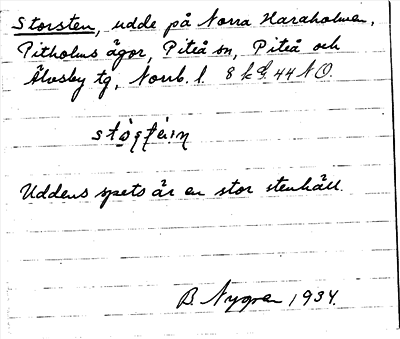 Storsten, udde på Norra Haraholmen,
Pitholms ägor, Piteå sn, Piteå och
Älvsby tg, Norrb. l. 8 k 44 NO.
Uddens spets är en stor stenhäll.
B. Nygren 1934.